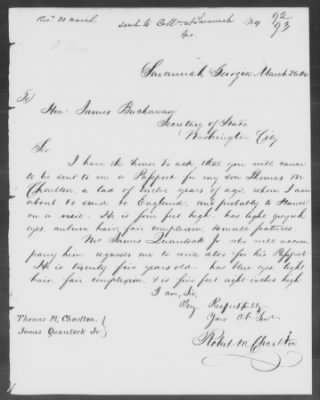 Rec. 30 March
sent to Coll. at Savannah
Geo.
No 92
93
Savannah Georgia March 26
To
Hon. James Buchanan
Secretary of State
Washington City
Sir
I have the honor to ask, that you will cause
to be sent to me a Passport for my son Thomas M
Charlton, a lad of twelve years of age, whom I am
about to send to England, and probably to France
on a visit. He is five feet high. has light greyish
eyes auburn hair, fair complexion, small features
Mr James Quantock Jr who will accom
pany him requests me to write also for his Passport
He is twenty five years old. has blue eyes, light
hair, fair complexion, & is five feet eight inches high
I am, Sir,
Very Respectfully
Your Ob. Servt
Robert M. Charlton
Thomas M. Charlton.
James Quantock Jr.